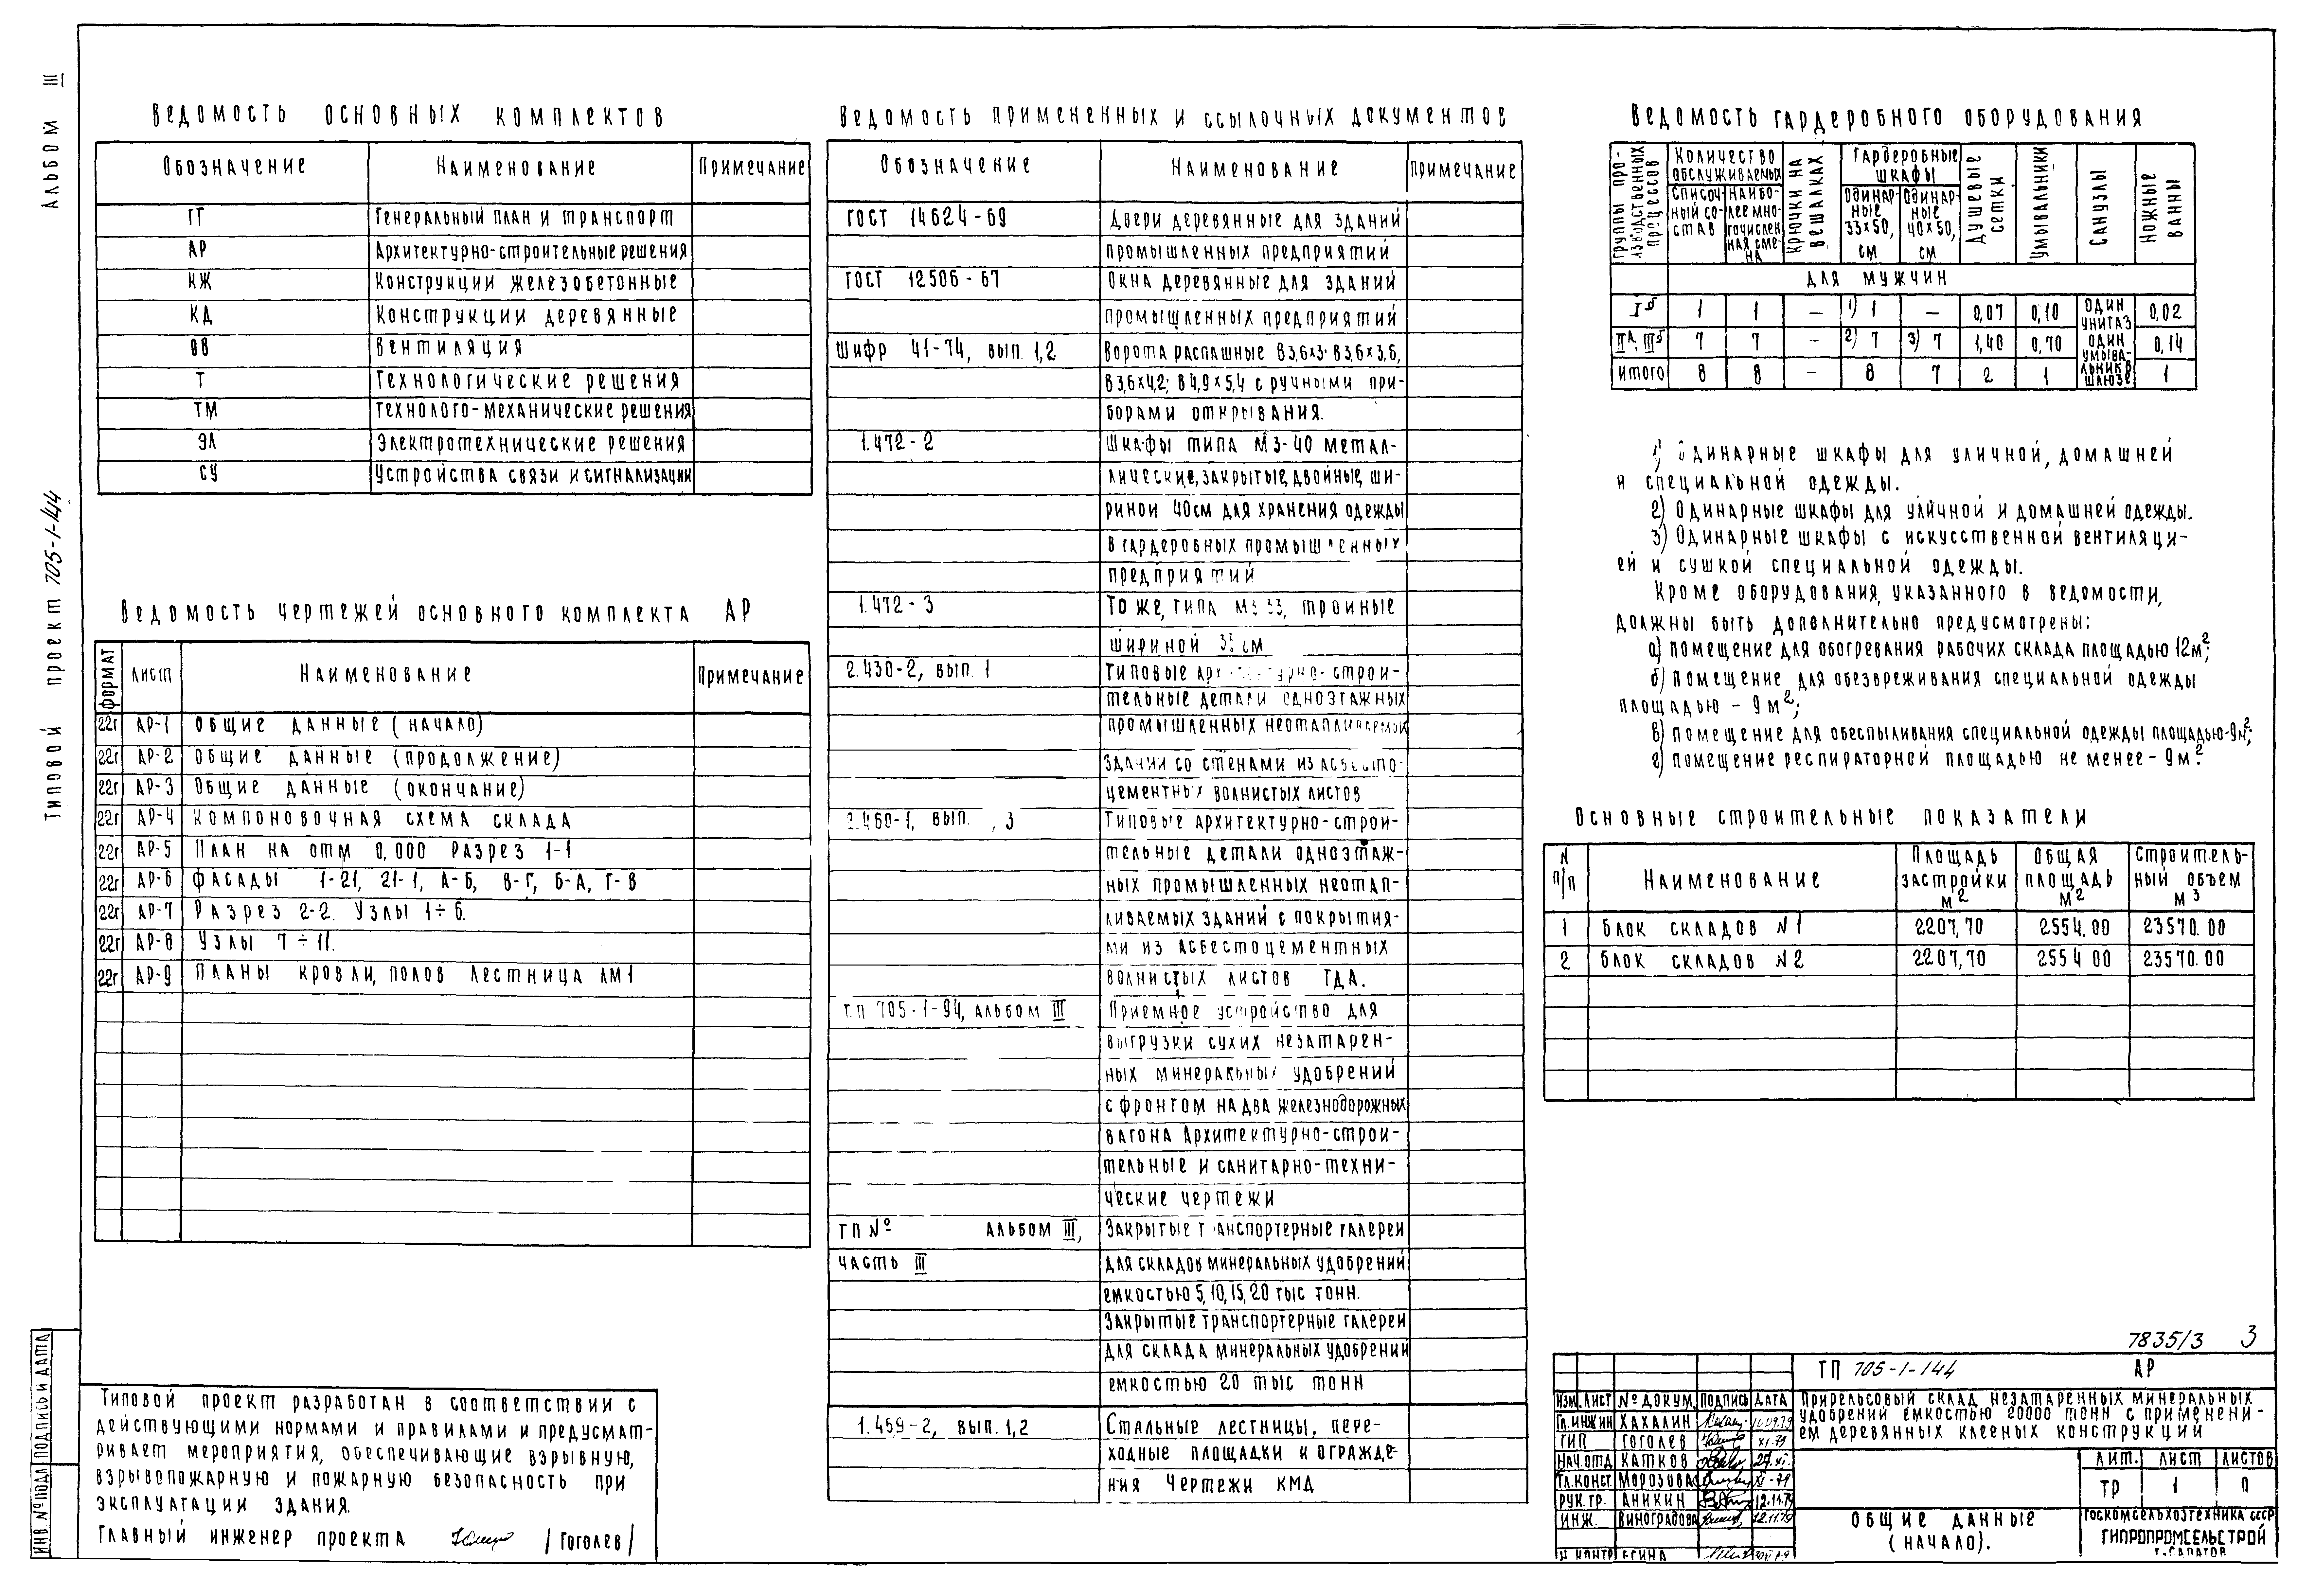 Альбом III
Типовой проект 705-1-144
Ведомость основных комплектов
Обозначение Наименование Примечание
ГТ Генеральный план и транспорт
АР Архитектурно-строительные решения
КЖ Конструкции железобетонные
КД Конструкции деревянные
ОВ Вентиляция
Т Технологические решения
ТМ Технолого-механические решения
ЭЛ Электротехнические решения
СУ Устройства связи и сигнализации
Ведомость чертежей основного комплекта АР
Формат Лист Наименование Примечание
22г АР-1 Общие данные (начало)
22г АР-2 Общие данные (продолжение)
22г АР-3 Общие данные (окончание)
22г АР-4 Компоновочная схема склада
22г АР-5 План на отм 0,000 Разрез 1-1
22г АР-6 Фасады 1-21, 21-1, А-Б, В-Г, Б-А, Г-В
22г АР-7 Разрез 2-2. Узлы 1÷6.
22г АР-8 Узлы 7÷11.
22г АР-9 Планы кровли, полов Лестница ЛМ1
Типовой проект разработан в соответствии с
действующими нормами и правилами и предусмат-
ривает мероприятия, обеспечивающие взрывную,
взрывопожарную и пожарную безопасность при
эксплуатации здания.
Главный инженер проекта /Гоголев/
Инв № подл Подпись и дата
Ведомость примененных и ссылочных документов
Обозначение Наименование Примечание
ГОСТ 14624-69 Двери деревянные для зданий
промышленных предприятий
ГОСТ 12506-67 Окна деревянные для зданий
промышленных предприятий
Шифр 41-74, вып. 1,2 Ворота распашные В3,6х3; В3,6х3,6,
В3,6х4,2; В4,9х5,4 с ручными при-
борами открывания.
1.472-2 Шкафы типа МЗ-40 метал-
лические, закрытые, двойные, ши-
риной 40см для хранения одежды
в гардеробных промышленных
предприятий
1.472-3 То же, типа МЗ 33, тройные
шириной 33 см
2.430-2, вып. 1 Типовые архитектурно-строи-
тельные детали одноэтажных
промышленных неотапливаемых
зданий со стенами из асбесто-
цементных волнистых листов
2.460-1, вып. , 3 Типовые архитектурно-строи-
тельные детали одноэтаж-
ных промышленных неотап-
ливаемых зданий с покрытия-
ми из асбестоцементных
волнистых листов ТДА.
ТП 705-1-94, альбом III Приемное устройство для
выгрузки сухих незатарен-
ных минеральных удобрений
с фронтом на два железнодорожных
вагона Архитектурно-строи-
тельные и санитарно-техни-
ческие чертежи
ТП № альбом III, Закрытые транспортерные галереи
часть III для складов минеральных удобрений
емкостью 5, 10, 15, 20 тыс тонн.
Закрытые транспортерные галереи
для склада минеральных удобрений
емкостью 20 тыс тонн
1.459-2, вып. 1,2 Стальные лестницы, пере-
ходные площадки и огражде-
ния Чертежи КМД
Ведомость гардеробного оборудования
Группы производственных процессов
Количество обслуживаемых
Списочный состав
Наиболее многочисленная смена
Крючки на вешалках
Гардеробные шкафы
Одинарные 33х50, см
Одинарные 40х50, см
Душевые сетки
Умывальники
Санузлы
Ножные ванны
Для мужчин
Iб 1 1 – 1) 1 – 0,07 0,10 0,02
IIа, IIIб 7 7 – 2) 7 3) 7 1,40 0,70 0,14
Итого 8 8 – 8 7 2 1 1
Один
унитаз
один
умыва-
льник в
шлюзе
1) Одинарные шкафы для уличной, домашней
и специальной одежды.
2) Одинарные шкафы для уличной и домашней одежды.
3) Одинарные шкафы с искусственной вентиляци-
ей и сушкой специальной одежды.
Кроме оборудования, указанного в ведомости,
должны быть дополнительно предусмотрены:
а) помещение для обогревания рабочих склада площадью 12м²;
б) помещение для обезвреживания специальной одежды
площадью – 9м²;
в) помещение для обеспыливания специальной одежды площадью-9м²;
г) помещение респираторной площадью не менее – 9м².
Основные строительные показатели
N п/п Наименование Площадь застройки м² Общая площадь м² Строительный объем м³
1 Блок складов N1 2207,70 2554.00 23570.00
2 Блок складов N2 2207,70 2554 00 23570.00
7835/3 3
ТП 705-1-144 АР
Изм. Лист № докум. Подпись Дата
Гл.инжин Хахалин
ГИП Гоголев XI.79
Нач.отд Катков 27.XI.
Гл.конст Морозова XI-79
Рук.гр. Аникин 12.11.79
Инж. Виноградова 12.11.79
Н контр Егина
Прирельсовый склад незатаренных минеральных
удобрений емкостью 20000 тонн с применени-
ем деревянных клееных конструкций
Лит. Лист Листов
ТР 1 9
Общие данные
(начало).
Госкомсельхозтехника СССР
Гипропромсельстрой
г. Саратов